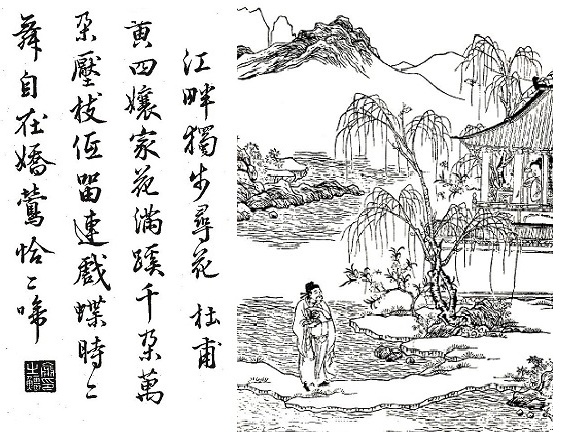 江畔獨步尋花 杜甫
黃四孃家花滿蹊千朵萬
朵壓枝低留連戲蝶時〻
舞自在嬌鶯恰〻啼